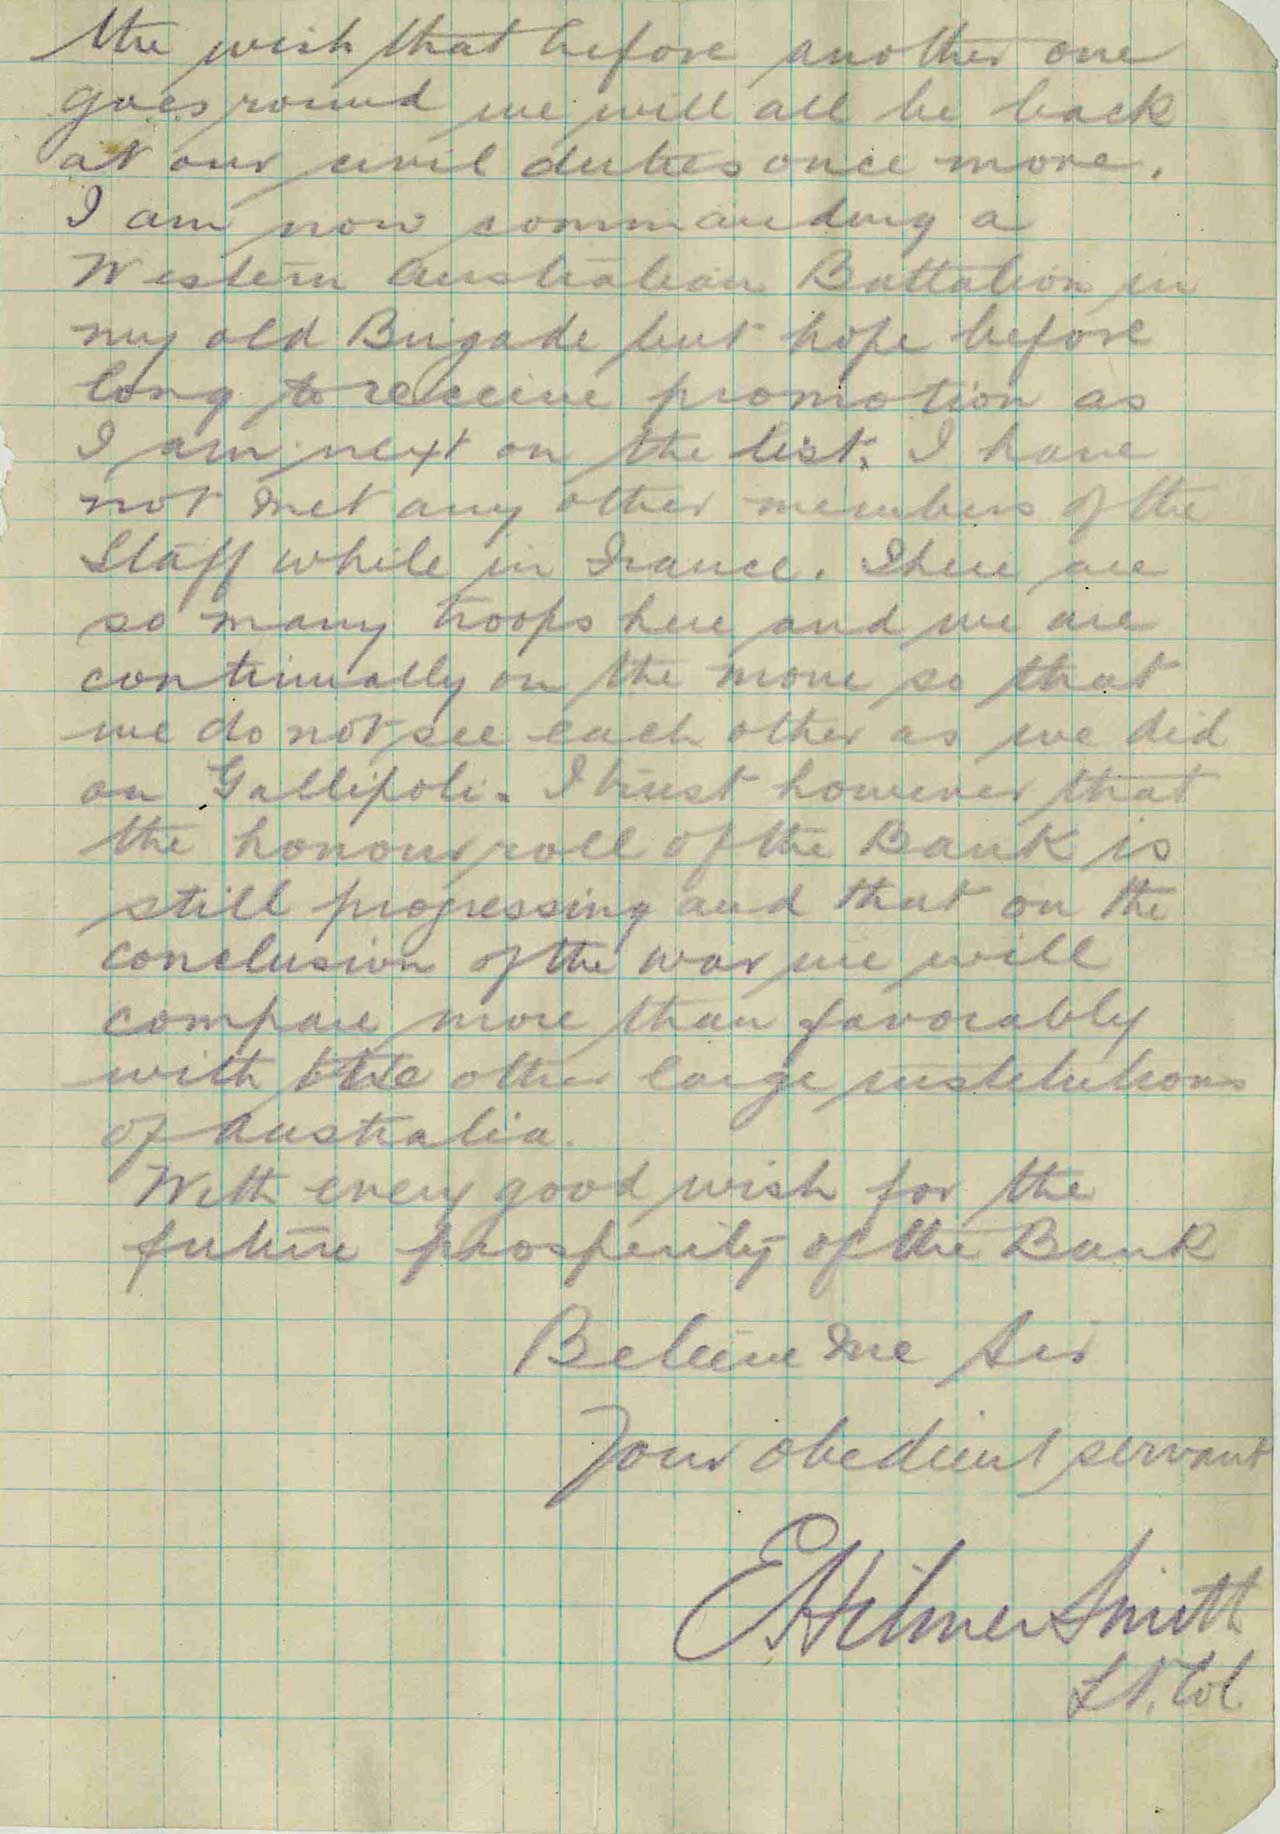 the wish that before another one
goes round we will all be back
at our civil duties once more.
I am now commanding a
Western Australian Battalion in
my old Brigade but hope before
long to receive promotion as
I am next on the list. I have
not met any other members of the
Staff while in France. There are
so many troops here and we are
continually on the move so that
we do not see each other as we did
on Gallipoli. I trust however that
the honour roll of the Bank is
still progressing and that on the
conclusion of the war we will
compare more than favorably
with the other large institutions
of Australia.
With every good wish for the
future prosperity of the Bank
Believe me Sir
Your obedient servant
E. Hilmer Smith
Lt. Col.